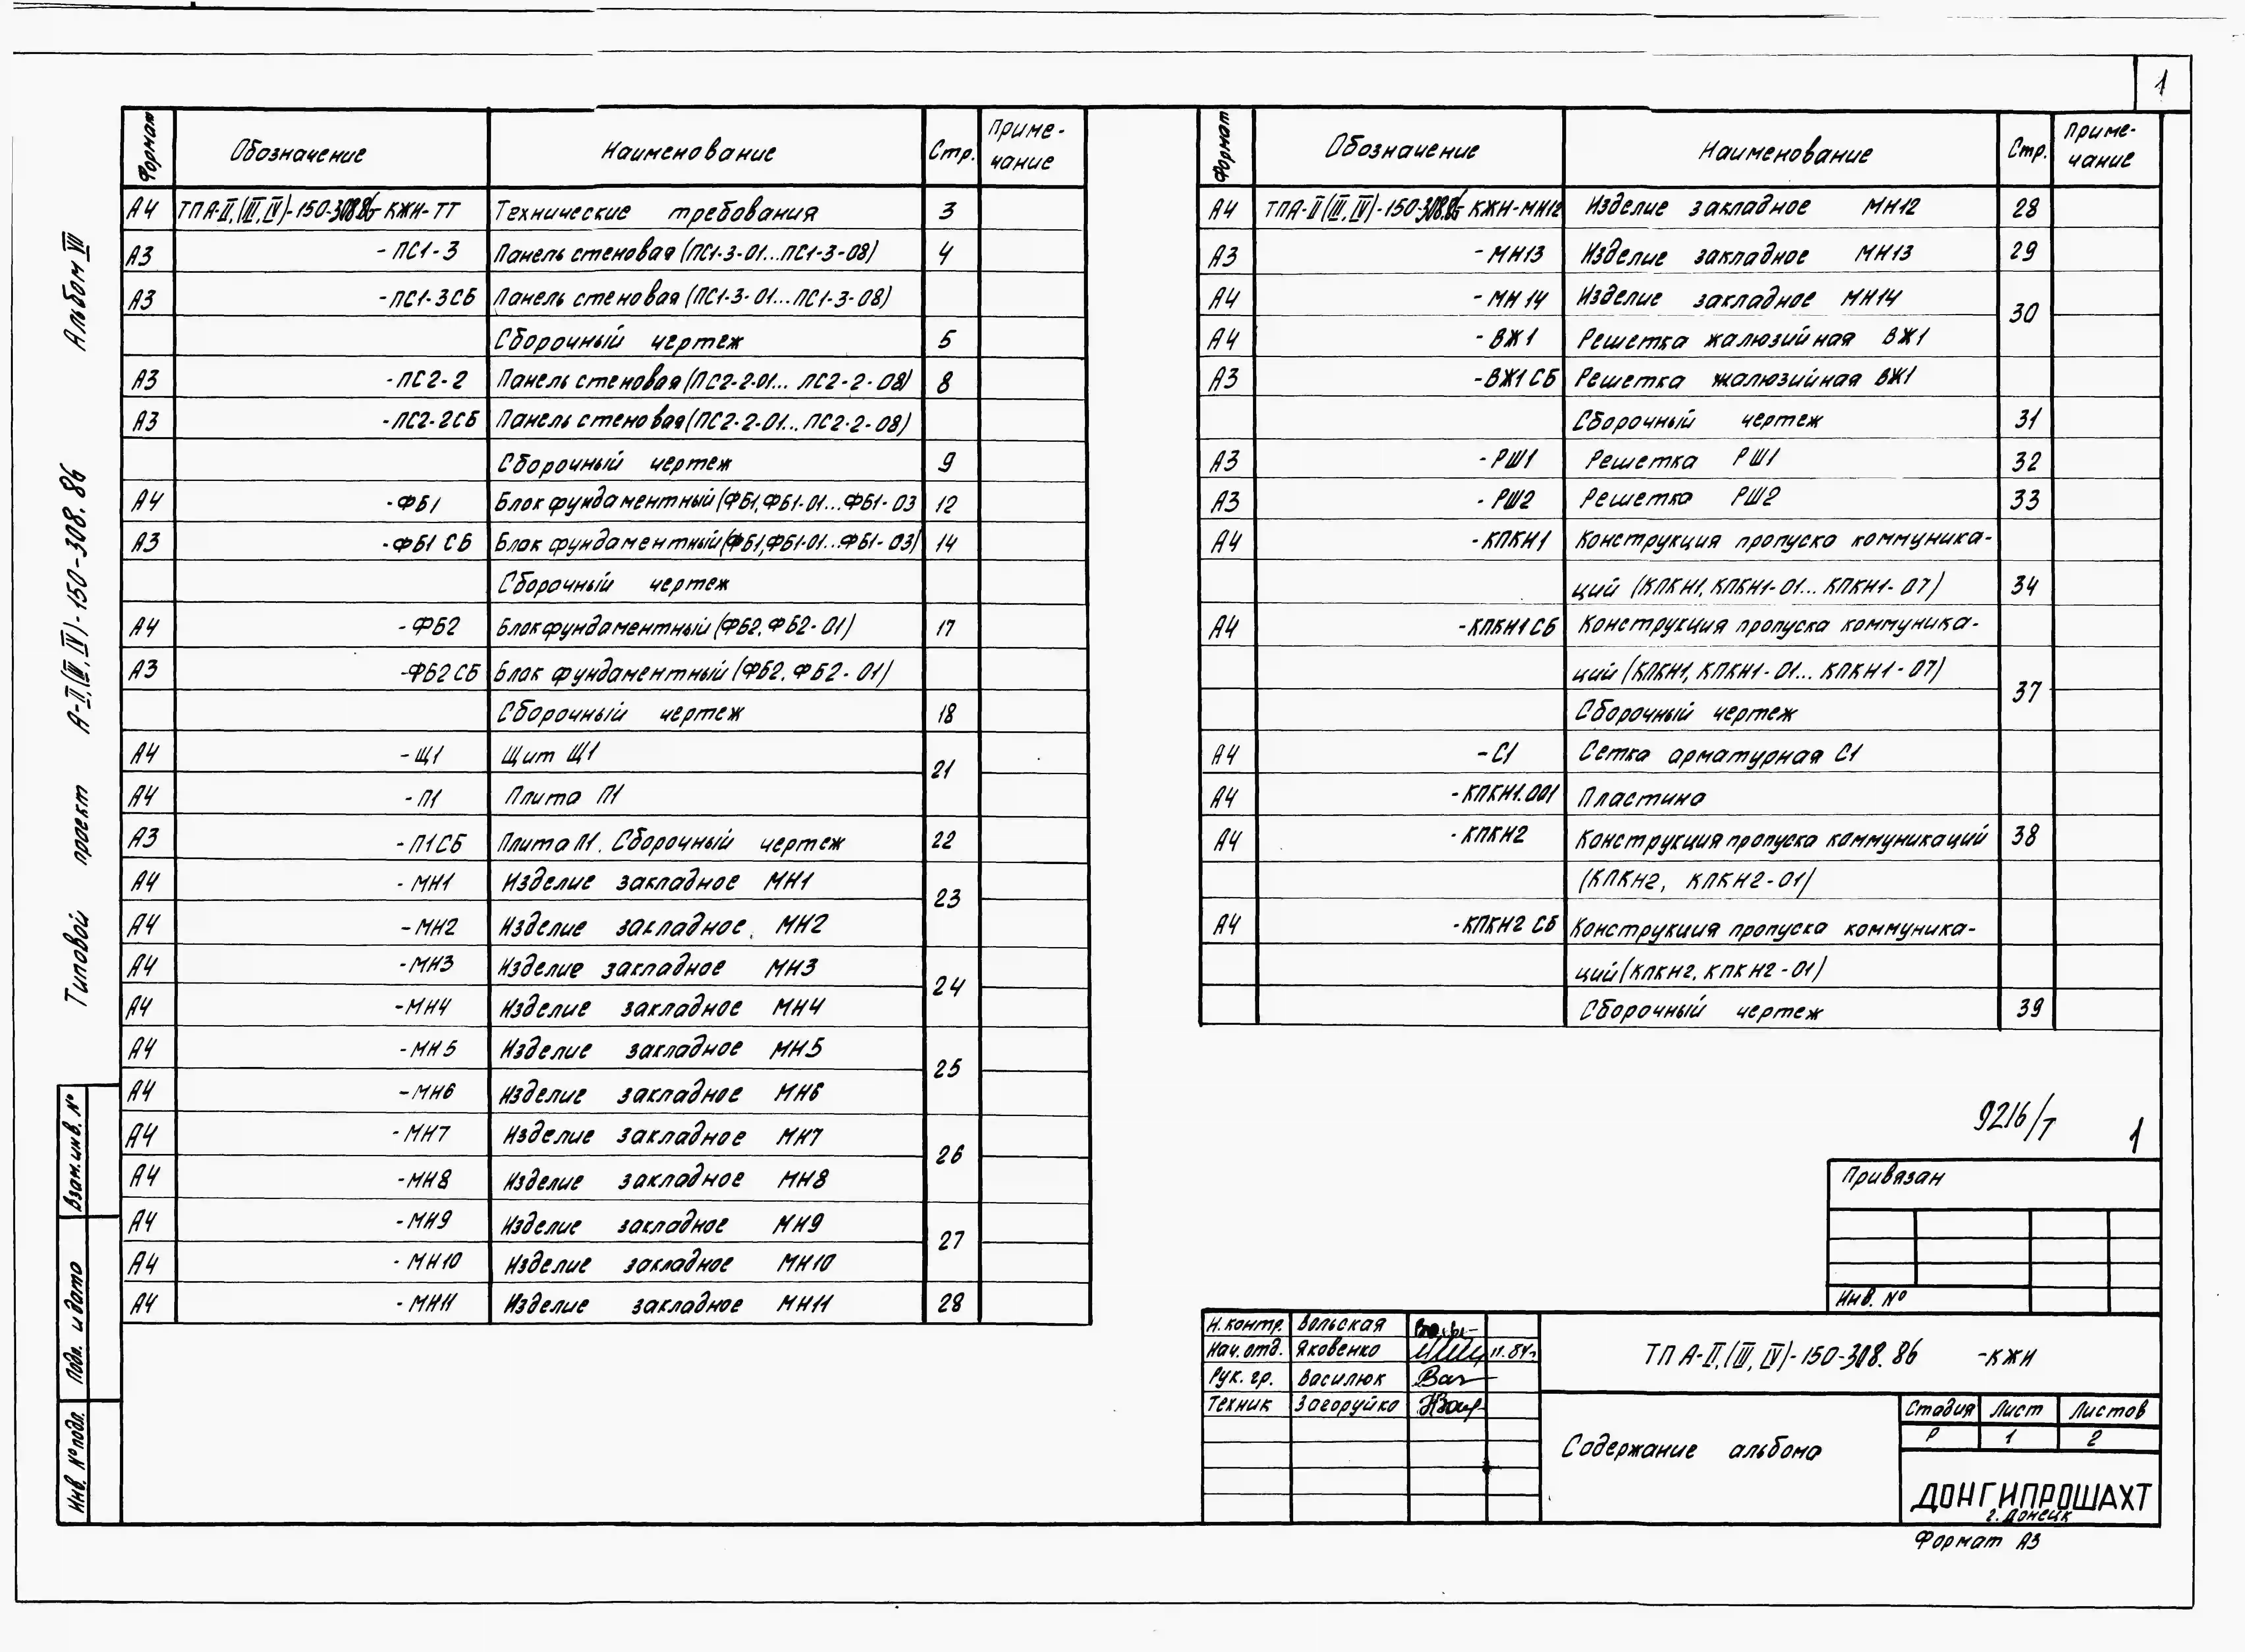 1
Альбом VII
Типовой проект А-II,(III,IV)-150-308.86
Взам.инв.№
Подп. и дата
Инв.№подл.
Формат Обозначение Наименование Стр. Приме-
чание
А4 ТПА-II,(III,IV)-150-308.86-КЖИ-ТТ Технические требования 3
А3 -ПС1-3 Панель стеновая (ПС1-3-01...ПС1-3-08) 4
А3 -ПС1-3СБ Панель стеновая (ПС1-3-01...ПС1-3-08)
Сборочный чертеж 5
А3 -ПС2-2 Панель стеновая (ПС2-2-01... ПС2-2-08) 8
А3 -ПС2-2СБ Панель стеновая (ПС2-2-01...ПС2-2-08)
Сборочный чертеж 9
А4 -ФБ1 Блок фундаментный (ФБ1,ФБ1-01...ФБ1-03 12
А3 -ФБ1 СБ Блок фундаментный (ФБ1,ФБ1-01...ФБ1-03) 14
Сборочный чертеж
А4 -ФБ2 Блок фундаментный (ФБ2,ФБ2-01) 17
А3 -ФБ2 СБ Блок фундаментный (ФБ2,ФБ2-01)
Сборочный чертеж 18
А4 -Щ1 Щит Щ1 21
А4 -П1 Плита П1
А3 -П1СБ Плита П1. Сборочный чертеж 22
А4 -МН1 Изделие закладное МН1 23
А4 -МН2 Изделие закладное МН2
А4 -МН3 Изделие закладное МН3 24
А4 -МН4 Изделие закладное МН4
А4 -МН5 Изделие закладное МН5 25
А4 -МН6 Изделие закладное МН6
А4 -МН7 Изделие закладное МН7 26
А4 -МН8 Изделие закладное МН8
А4 -МН9 Изделие закладное МН9 27
А4 -МН10 Изделие закладное МН10
А4 -МН11 Изделие закладное МН11 28
Формат Обозначение Наименование Стр. Приме-
чание
А4 ТПА-II(III,IV)-150-308.86-КЖИ-МН12 Изделие закладное МН12 28
А3 -МН13 Изделие закладное МН13 29
А4 -МН14 Изделие закладное МН14 30
А4 -ВЖ1 Решетка жалюзийная ВЖ1
А3 -ВЖ1СБ Решетка жалюзийная ВЖ1
Сборочный чертеж 31
А3 -РШ1 Решетка РШ1 32
А3 -РШ2 Решетка РШ2 33
А4 -КПКН1 Конструкция пропуска коммуника-
ций (КПКН1,КПКН1-01...КПКН1-07) 34
А4 -КПКН1СБ Конструкция пропуска коммуника-
ций (КПКН1, КПКН1-01... КПКН1-07) 37
Сборочный чертеж
А4 -С1 Сетка арматурная С1
А4 -КПКН1.001 Пластина
А4 -КПКН2 Конструкция пропуска коммуникаций 38
(КПКН2, КПКН2-01)
А4 -КПКН2 СБ Конструкция пропуска коммуника-
ций(КПКН2,КПКН2-01)
Сборочный чертеж 39
9216/т 1
Привязан
Инв. №
Н.контр. Вольская
Нач.отд. Яковенко 11.84г
Рук. гр. Василюк
Техник Загоруйко
ТП А-II,(III,IV)-150-308.86 -КЖИ
Содержание альбома
Стадия Лист Листов
Р 1 2
ДОНГИПРОШАХТ
г.Донецк
Формат А3